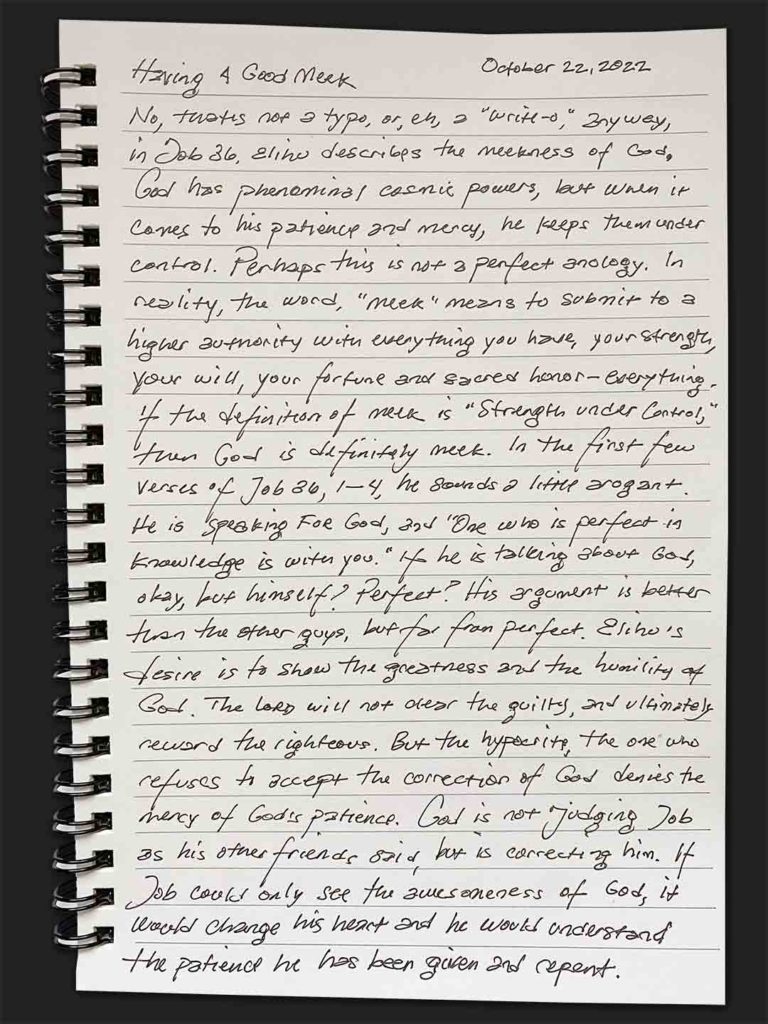 Having A Good Meek
October 22, 2022
No, that's not a typo, or, eh, a "write-o," anyway,
in Job 36, Elihu describes the meekness of God.
God has phenominal cosmic powers, but when it
comes to his patience and mercy, he keeps them under
control. Perhaps this is not a perfect anology. In
reality, the word, "meek" means to submit to a
higher authority with everything you have, your strength,
your will, your fortune and sacred honor—everything.
If the definition of meek is "Strength under Control,"
then God is definitely meek. In the first few
verses of Job 36, 1-4, he sounds a little arogant.
He is speaking For God, and "One who is perfect in
knowledge is with you." If he is talking about God,
okay, but himself? Perfect? His argument is better
than the other guys, but far from perfect. Elihu's
desire is to show the greatness and the humility of
God. The Lord will not clear the guilty, and ultimately
reward the righteous. But the hypocrite, the one who
refuses to accept the correction of God denies the
mercy of God's patience. God is not judging Job
as his other friends said, but is correcting him. If
Job could only see the awesomeness of God, it
would change his heart and he would understand
the patience he has been given and repent.